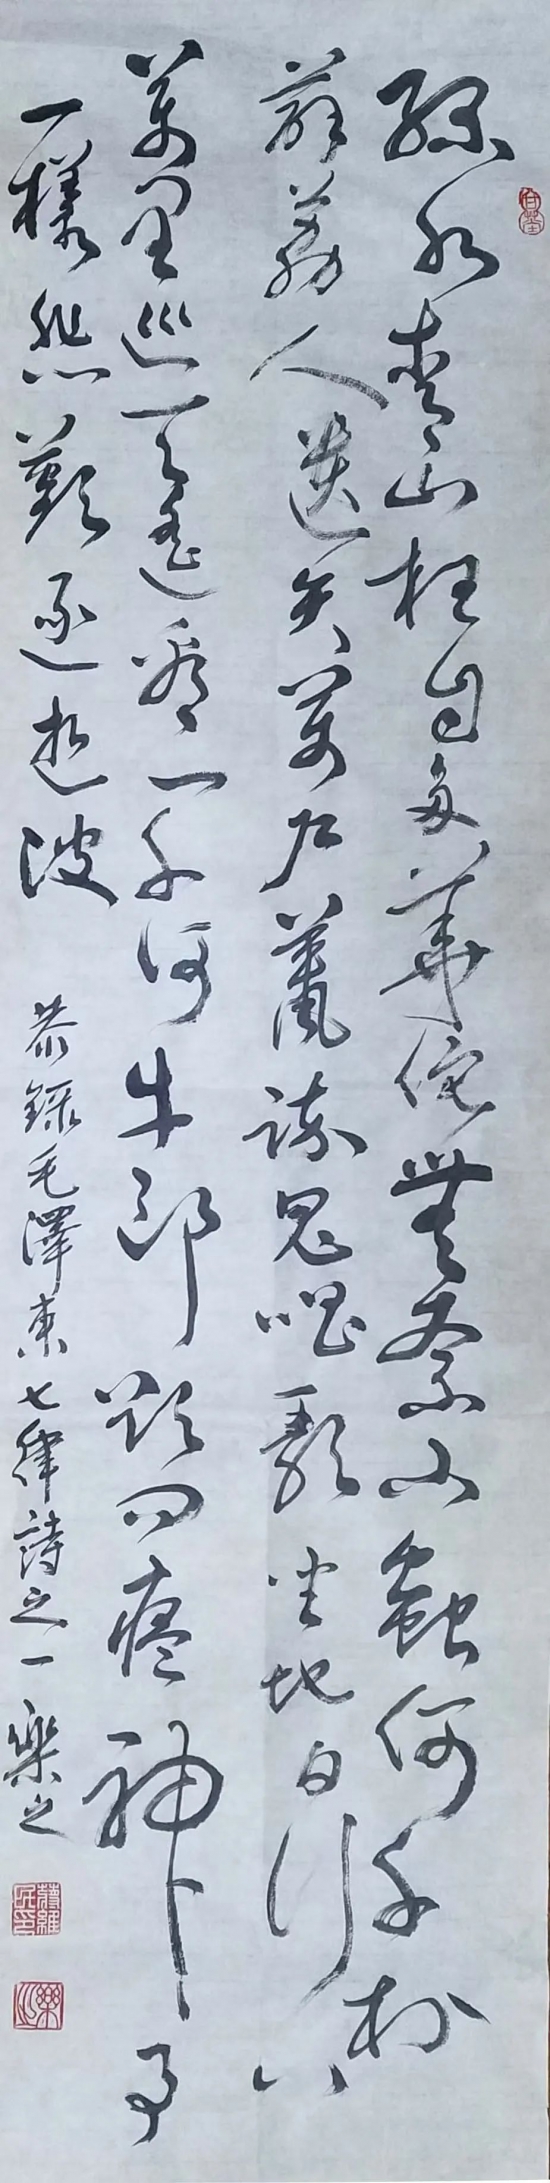 綠水青山枉自多華佗無奈小蟲何千村
薜荔人遺矢萬戶蕭疏鬼唱歌坐地日行八
萬里巡天遙看一千河牛郎欲問瘟神事
一樣悲歡逐逝波
恭錄毛澤東七律詩之一樂之
樂之